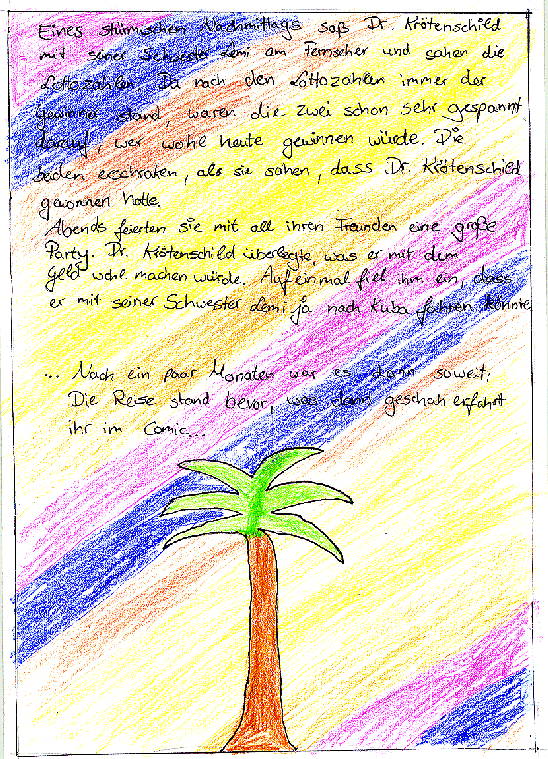 Eines stürmischen Nachmittags saß Dr. Krötenschild
mit seiner Schwester Lemi am Fernseher und sahen die
Lottozahlen. Da nach den Lottozahlen immer der
Gewinner stand, waren die zwei schon sehr gespannt
darauf, wer wohl heute gewinnen würde. Die
beiden erschraken, als sie sahen, dass Dr. Krötenschild
gewonnen hatte.
Abends feierten sie mit all ihren Freunden eine große
Party. Dr. Krötenschild überlegte, was er mit dem
Geld wohl machen würde. Auf einmal fiel ihm ein, dass
er mit seiner Schwester Lemi ja nach Kuba fahren könnte
... Nach ein paar Monaten war es dann soweit:
Die Reise stand bevor, was dann geschah erfahrt
ihr im Comic...